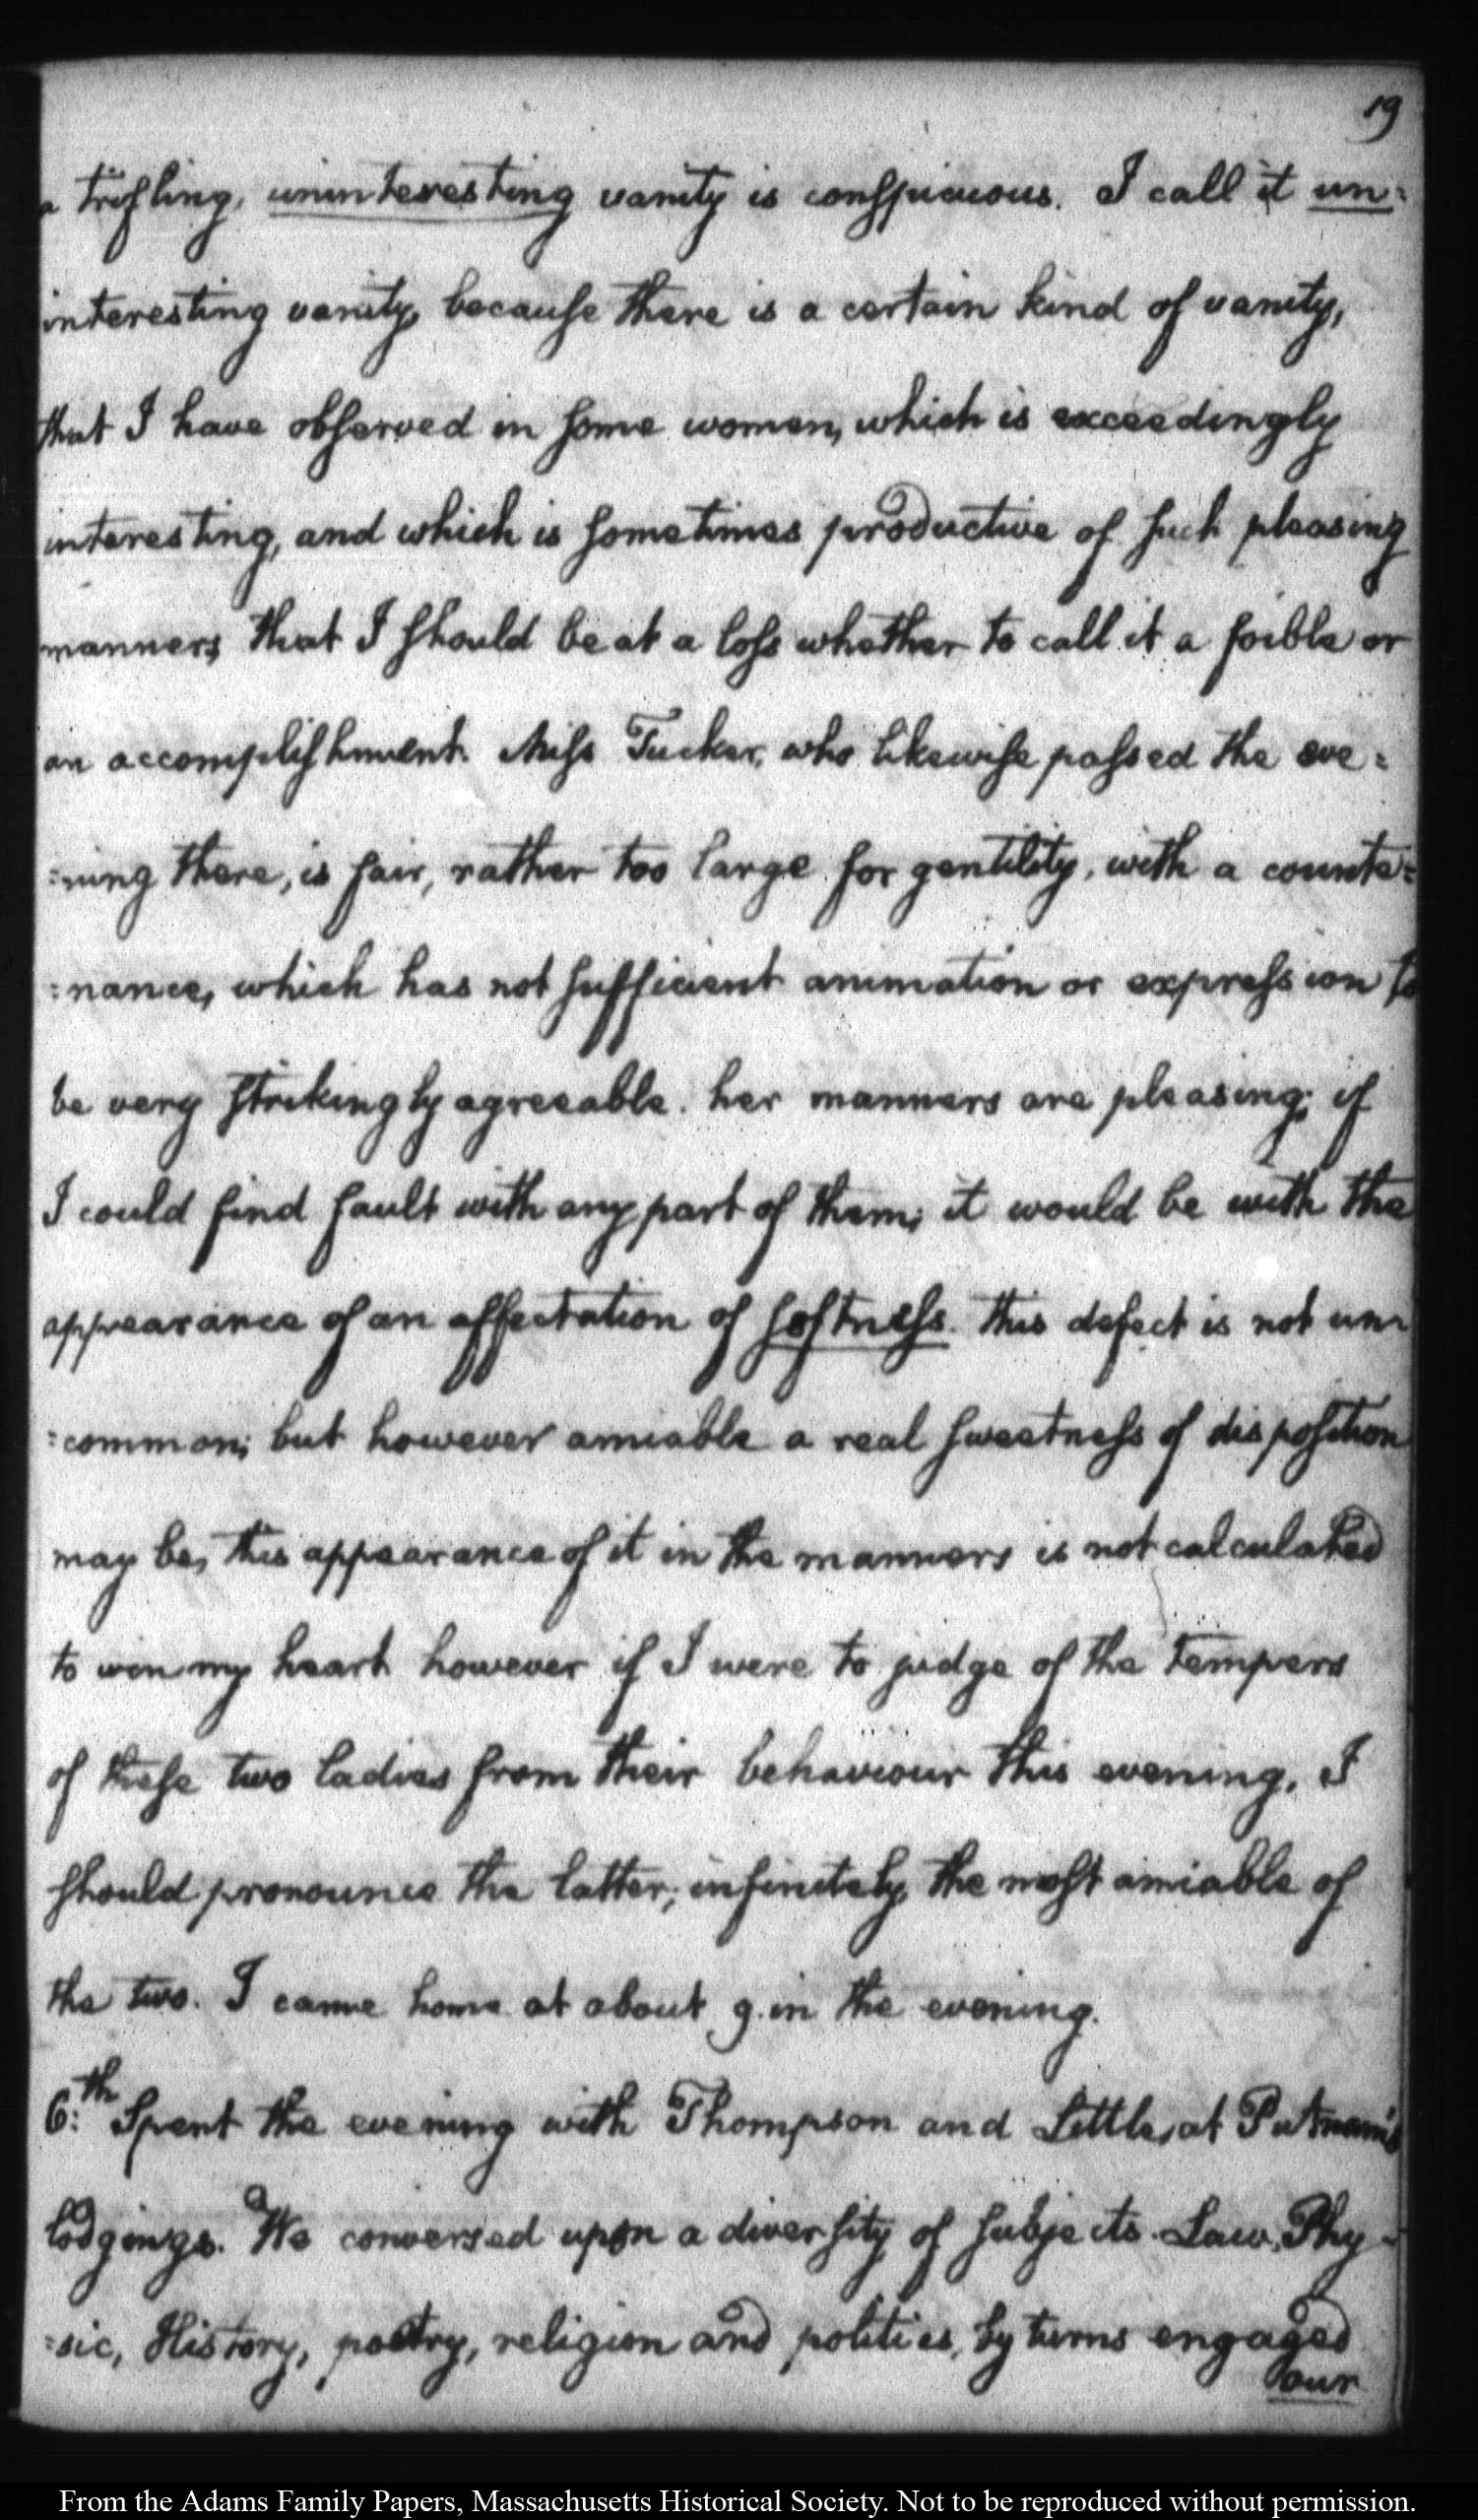 19
a trifling, uninteresting vanity is conspicuous. I call it un=
interesting vanity, because there is a certain kind of vanity,
that I have observed in some women, which is exceedingly
interesting, and which is sometimes productive of such pleasing
manners, that I should be at a loss whether to call it a foible or
an accomplishment. Miss Tucker, who likewise passed the eve=
=ning there, is fair, rather too large for gentility, with a counte=
=nance, which has not sufficient animation or expression to
be very strikingly agreeable. her manners are pleasing; if
I could find fault with any part of them, it would be with the
appearance of an affectation of softness. this defect is not un=
=common; but however amiable a real sweetness of disposition
may be, this appearance of it in the manners is not calculated
to win my heart. however if I were to judge of the tempers
of these two ladies from their behaviour this evening, I
should pronounce the latter, infinitely, the most amiable of
the two. I came home at about 9. in the evening.
6:th Spent the evening with Thompson and Little, at Putnam's
lodgings. We conversed upon a diversity of subjects. Law, Phy=
=sic, History, poetry, religion and politics, by turns engaged
our
From the Adams Family Papers, Massachusetts Historical Society. Not to be reproduced without permission.